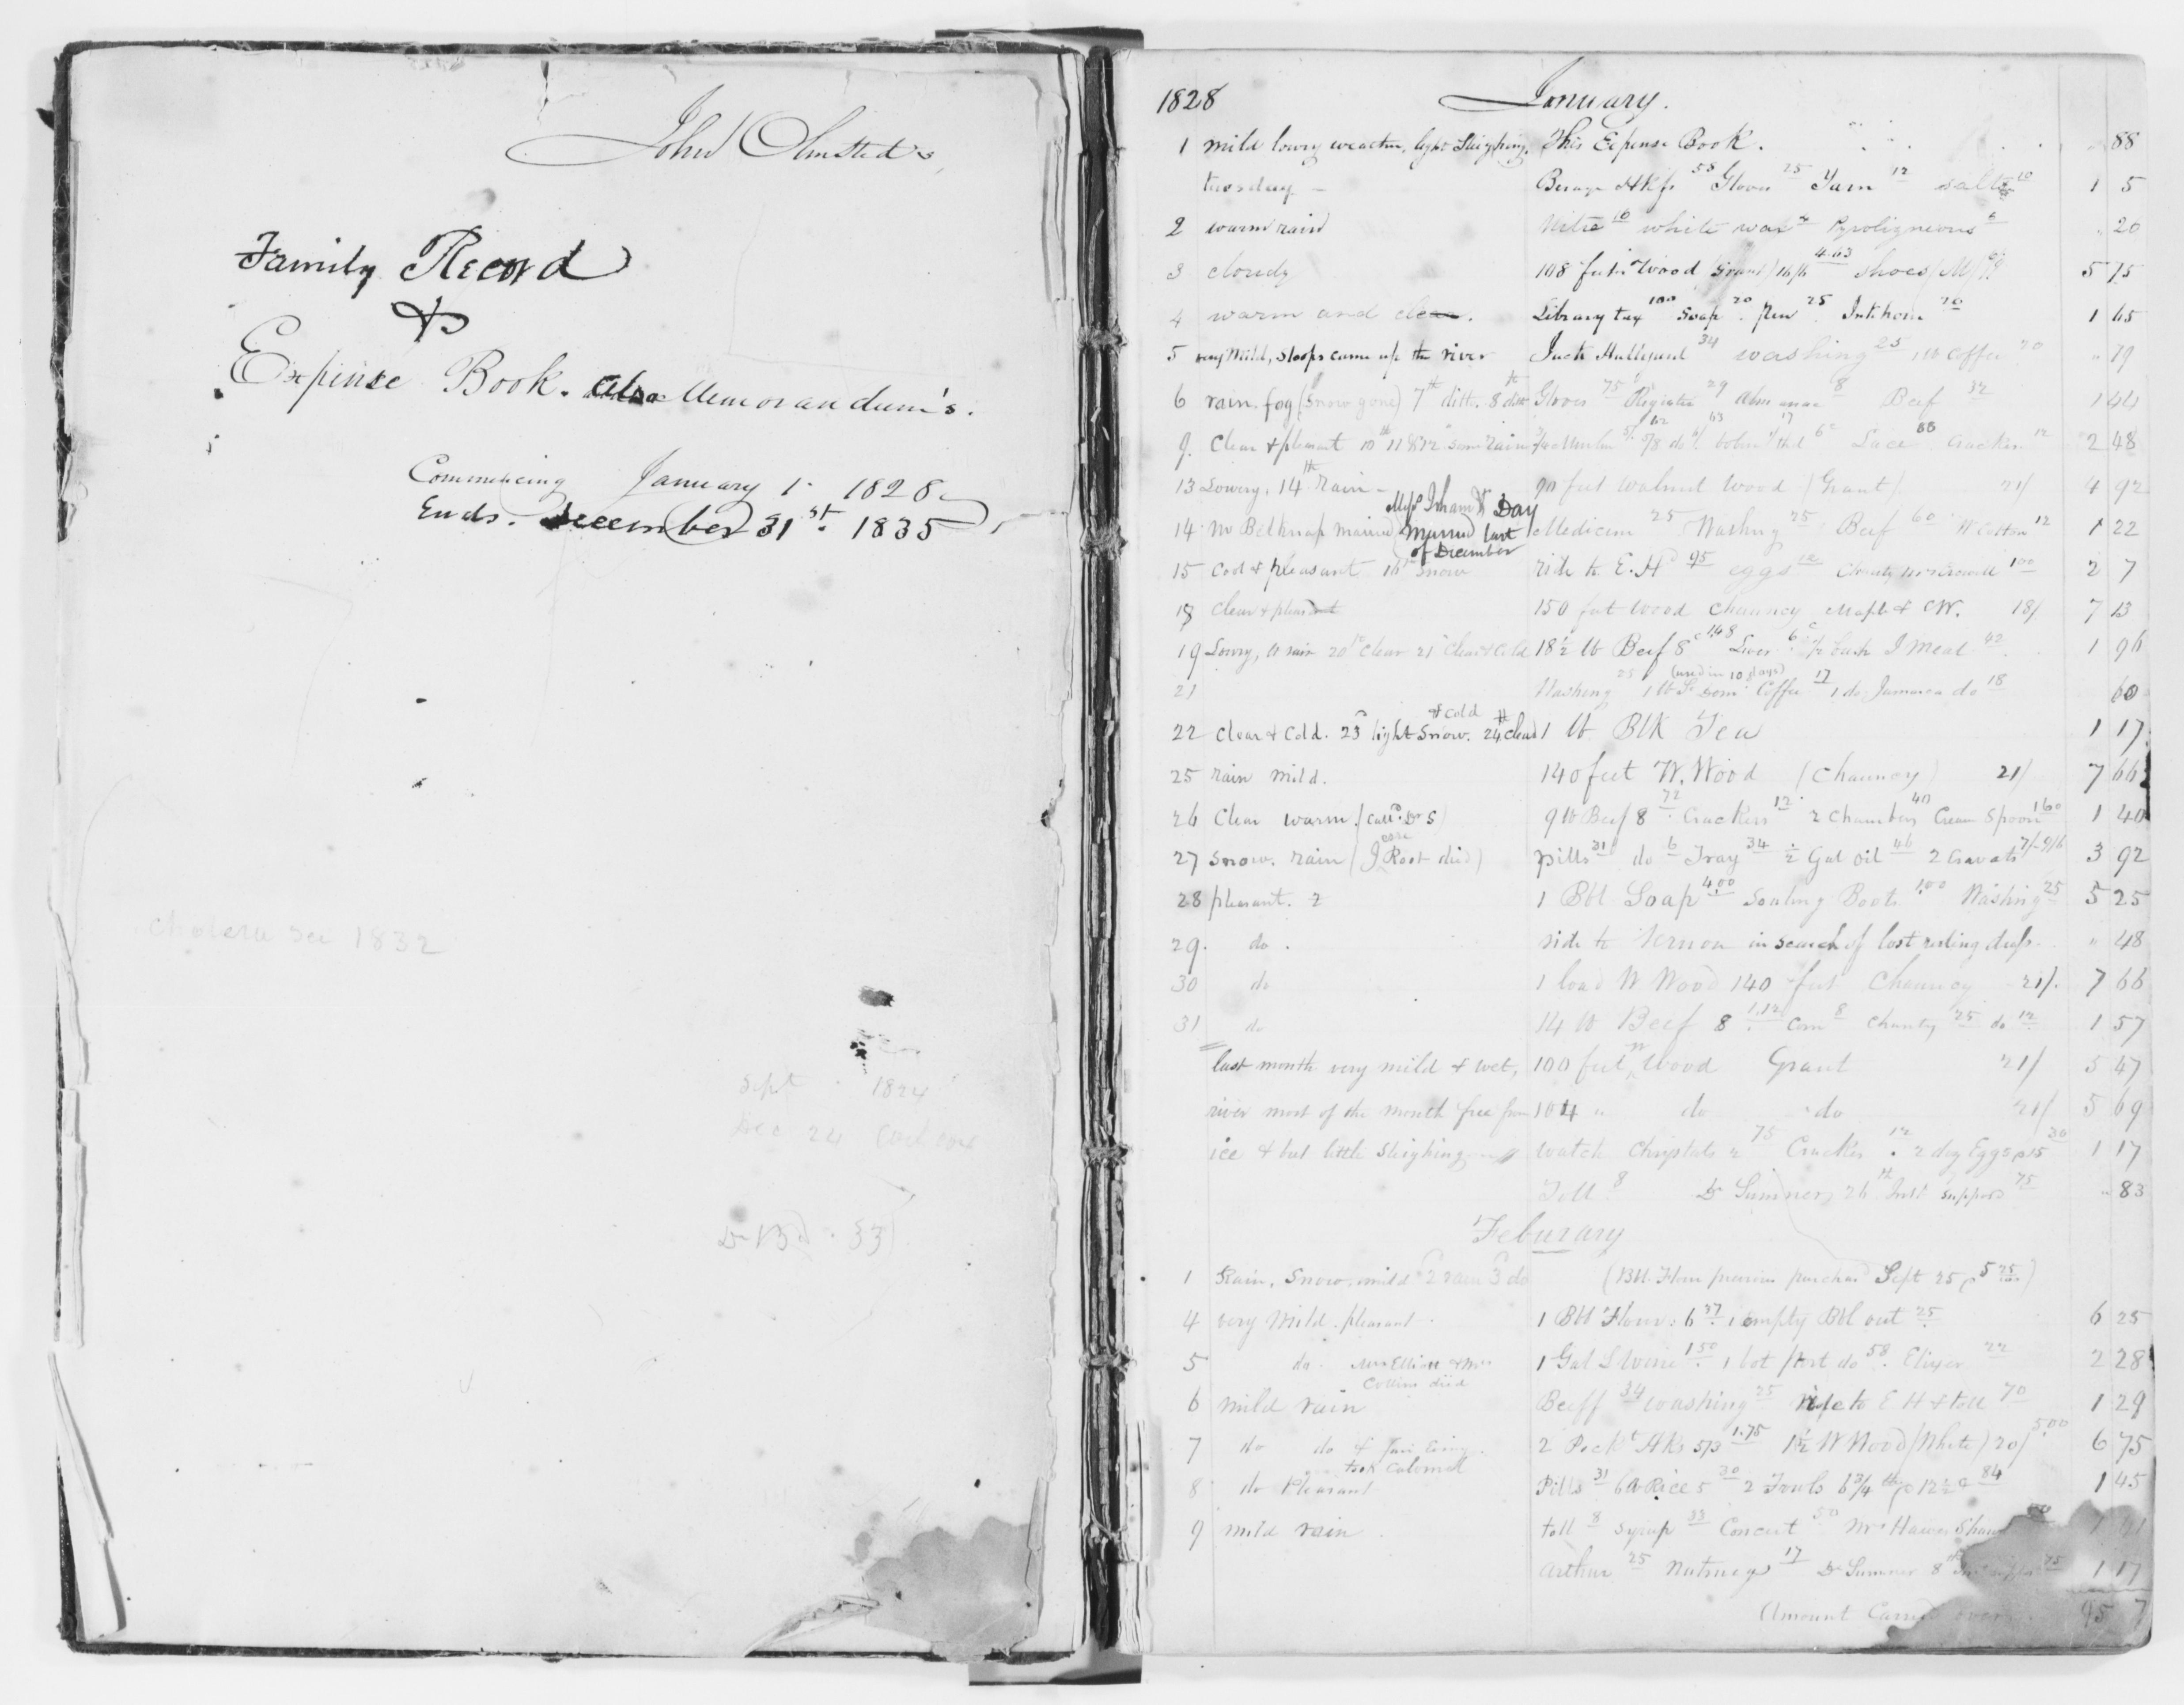 John Olmsted's
Family Record
&
Expense Book. also Memorandum's.
Commencing January 1. 1828.
Ends. December 31st. 1835
Cholera see 1832
Sept 1824
Dec 24
33
1828 January.
1 mild lowry weather, light Sleighing. This Expense Book. 88
tuesday - Hkfs 58 Gloves 25 Yarn 12 salts 10 1 5
2 warm rain Nitre 10 white wax 4 Pyroligneous 6 20
3 cloudy 108 feet Wood (Grant) 4.63 shoes 5 75
4 warm and clear. Library tax 100 Soap 20 pen 25 Inkhorn 20 1 65
5 very Mild, Sloops came up the river Jack 34 washing 25 1 lb Coffee 20 79
6 rain. fog (Snow gone) 7th ditto. 8 ditto Gloves 75 Register 29 Almanac 8 Beef 32 1 44
9. Clear & pleasant 10th 11 & 12 some rain Lace 88 Crackers 12 2 48
13 Lowery. 14th Rain - 90 feet Walnut Wood (Grant) 21/ 4 92
14 Mr Belknap married Miss Isham & Day Married last of December Medicine 25 Washing 25 Beef 60 Cotton 12 1 22
15 Cool & pleasant 16th Snow ride to E.Hd 95 eggs 12 Charity 100 2 7
18 Clear & pleasant 150 feet Wood Chauncy Maple & W. 18/ 7 13
19 Lowry, & rain 20th Clear 21st Clear & Cold 18½ lb Beef 8c 1.48 Liver 6 ½ bush I Meal 42 1 96
21 Washing 25 1 lb Coffee 17 (used in 10 days) 1 do. Jamaica do 18 60
22 Clear & Cold. 23d light Snow. & cold 24th clear 1 lb Blk Tea 1 17
25 rain mild. 140 feet W. Wood (Chauncy) 21/ 7 66
26 Clear warm. (Calld Dr S) 9 lb Beef 8 72 Crackers 12 2 Chambers 40 Cream Spoon 160 1 40
27 Snow. rain (Root died) pills 31 do 6 Tray 34 ½ Gal oil 46 2 Cravats 7/- 9/6 3 92
28 pleasant. 2 1 Bbl Soap 4.00 Soaling Boots 1.00 Washing 25 5 25
29. do. ride to Vernon in search of lost riding dress. 48
30 do 1 load W Wood 140 feet Chauncy 21/. 7 66
31 do 14 lb Beef 8 1.12 Corn 8 Charity 25 do 12 1 57
last month very mild & wet, 100 feet W Wood Grant 21/ 5 47
river most of the month free from 104 " do do 21/ 5 69
ice & but little Sleighing watch Chrystals 2 75 Crackers 12. 2 doz Eggs 15 30 1 17
Toll 8 Dr Sumner, 26th Inst 75 83
Feburary
1 Rain, Snow. mild 2d rain 3d do (Bbl. Flour previous purchas'd Sept 25 5 25)
4 very Mild. pleasant 1 Bbl Flour. 6 37. 1 empty Bbl out 25 6 25
5 do. Mrs Elliott & Mrs Collins died 1 Gal S Wine 1.50 1 bot Port do 58. Elixer 22 2 28
6 mild rain Beeff 34 washing 25 to E H & toll 70 1 29
7 do do & took Calomel 2 Pockt Hks 5/3 1.75 1½ W Wood (White) 20/ 5.00 6 75
8 do Pleasant Pills 31 6 lb Rice 5 30 2 Fowls 6¾ lb 12½ 84 1 45
9 mild rain toll 8 Syrup 33 Concert 50 Mrs Hawes
Arthur 25 Nutmegs 17 Dr Sumner 8th 75 1 17
Amount Carried over. 95 7